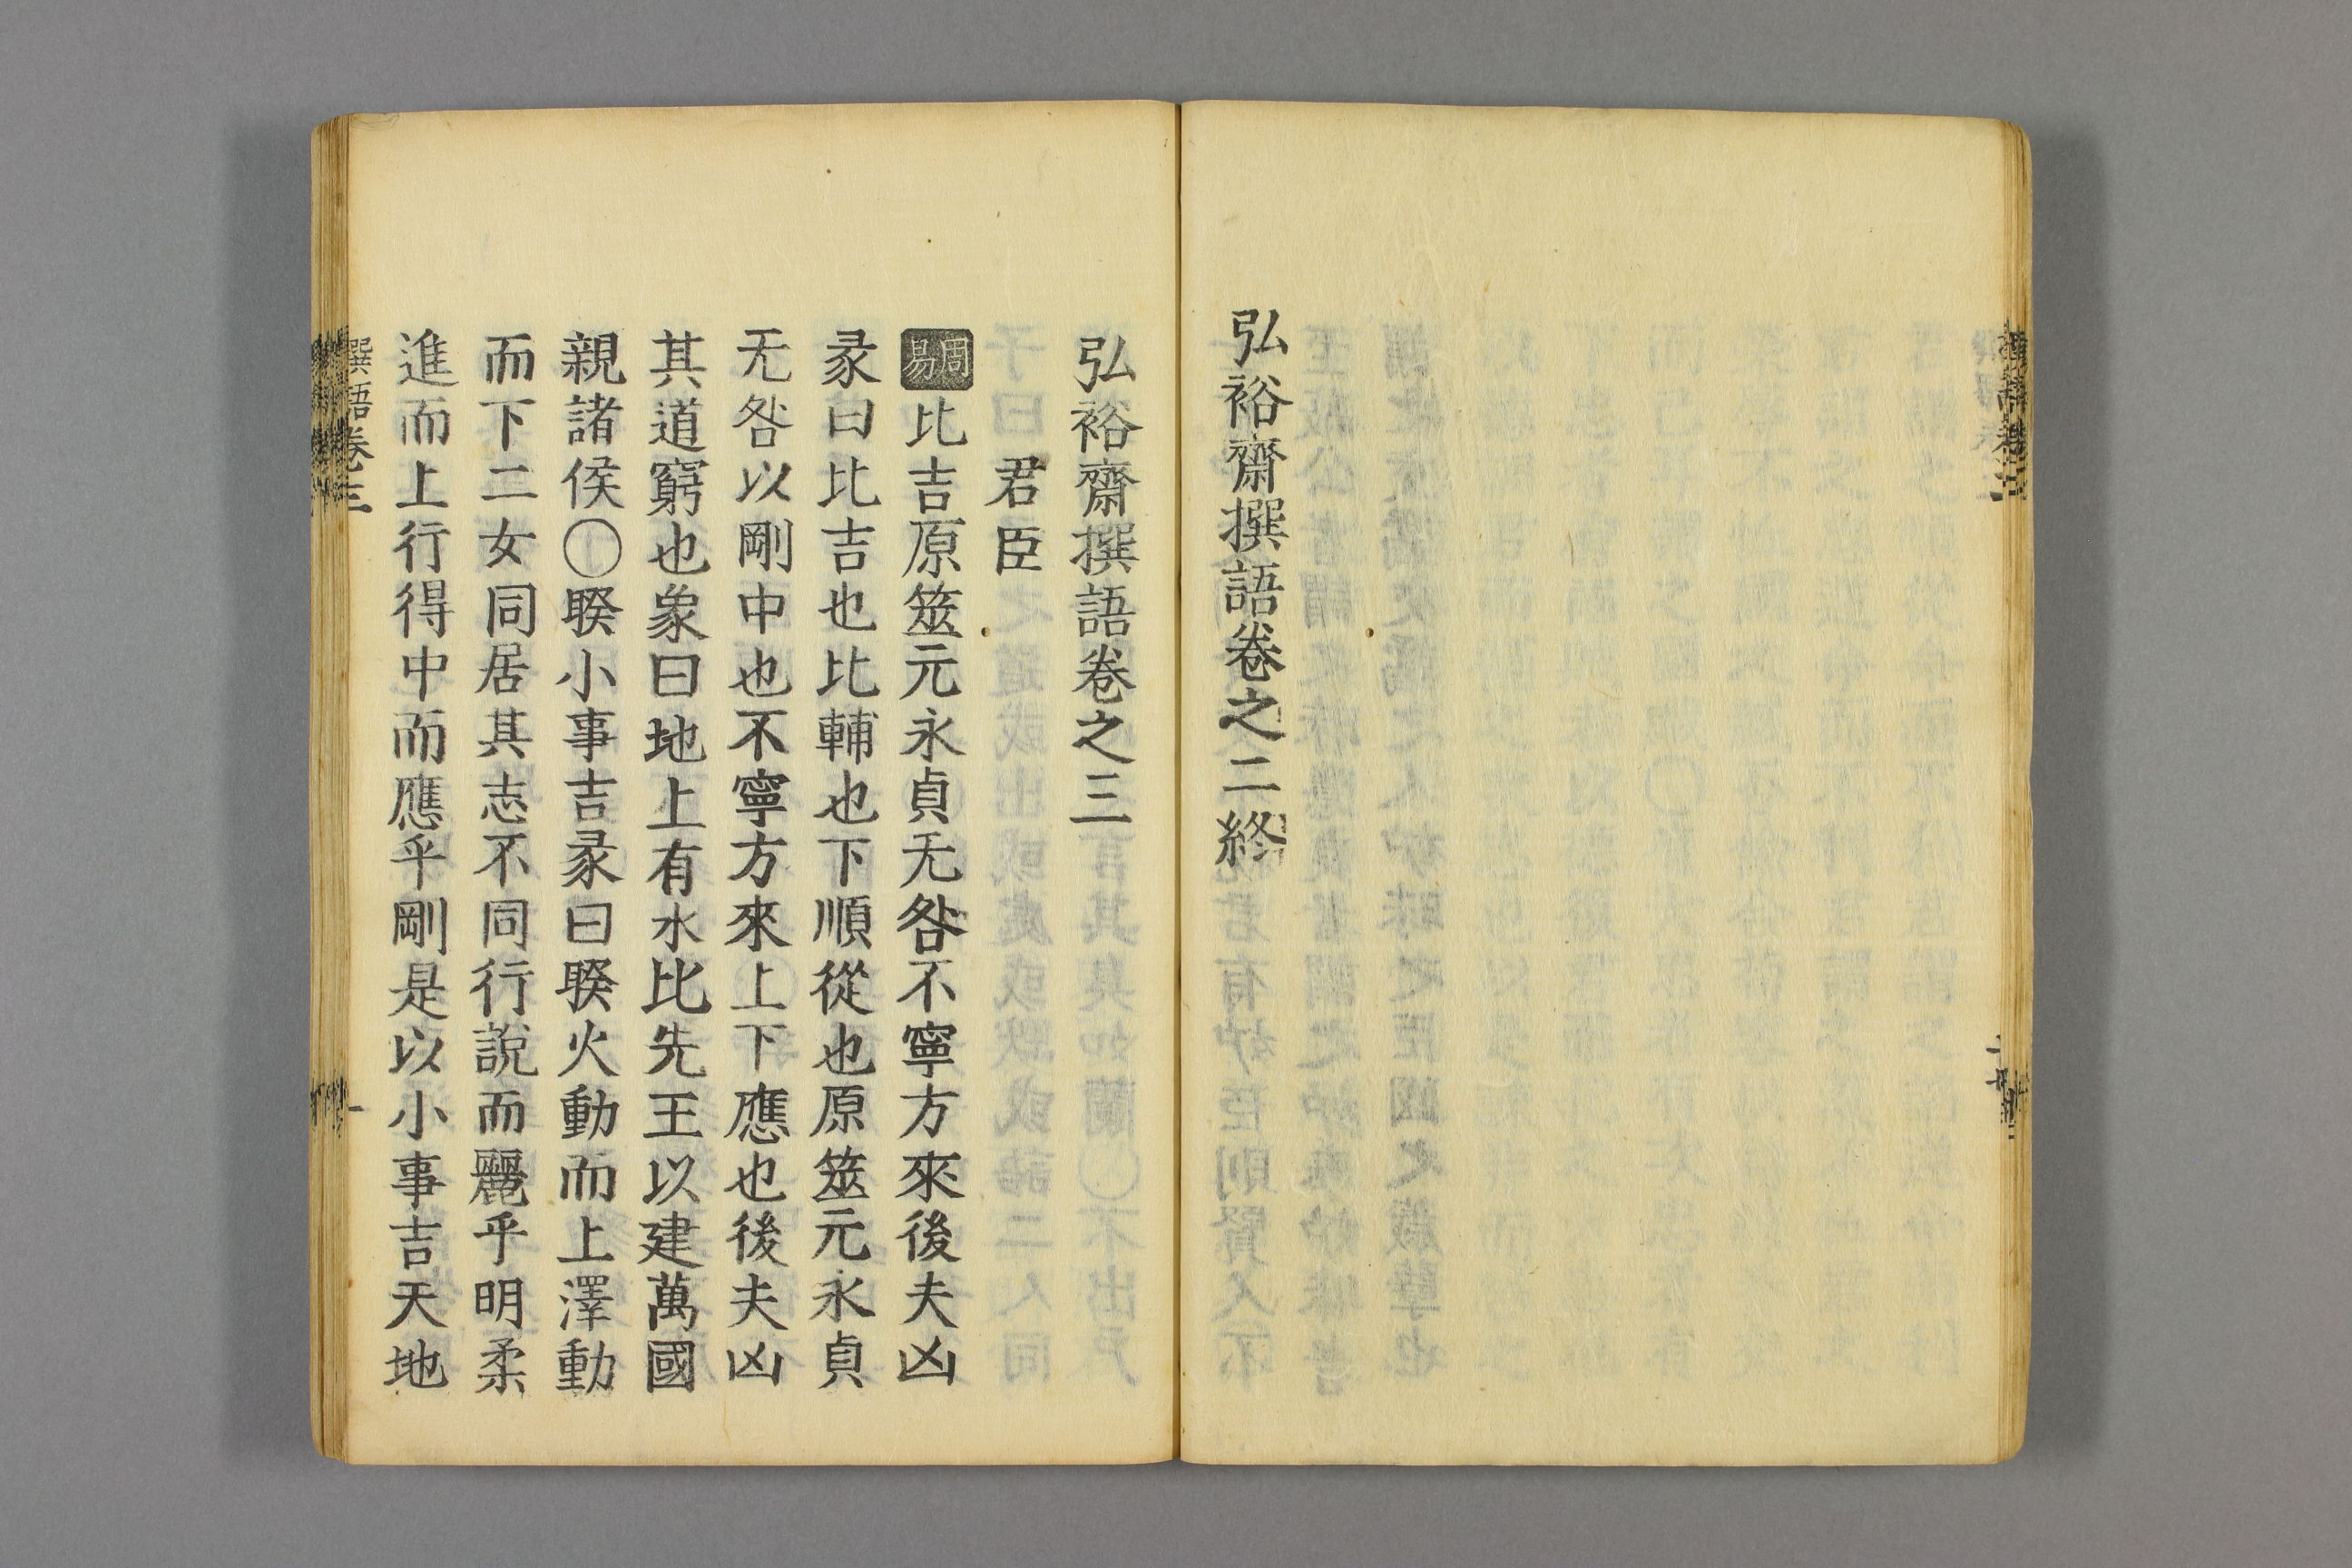 弘裕齋撰語卷之二終
弘裕齋撰語卷之三
君臣
周易比吉原筮元永貞无咎不寧方來後夫凶
彖曰比吉也比輔也下順從也原筮元永貞
无咎以剛中也不寧方來上下應也後夫凶
其道窮也象曰地上有水比先王以建萬國
親諸侯〇睽小事吉彖曰睽火動而上澤動
而下二女同居其志不同行說而麗乎明柔
進而上行得中而應乎剛是以小事吉天地
撰語卷三
一